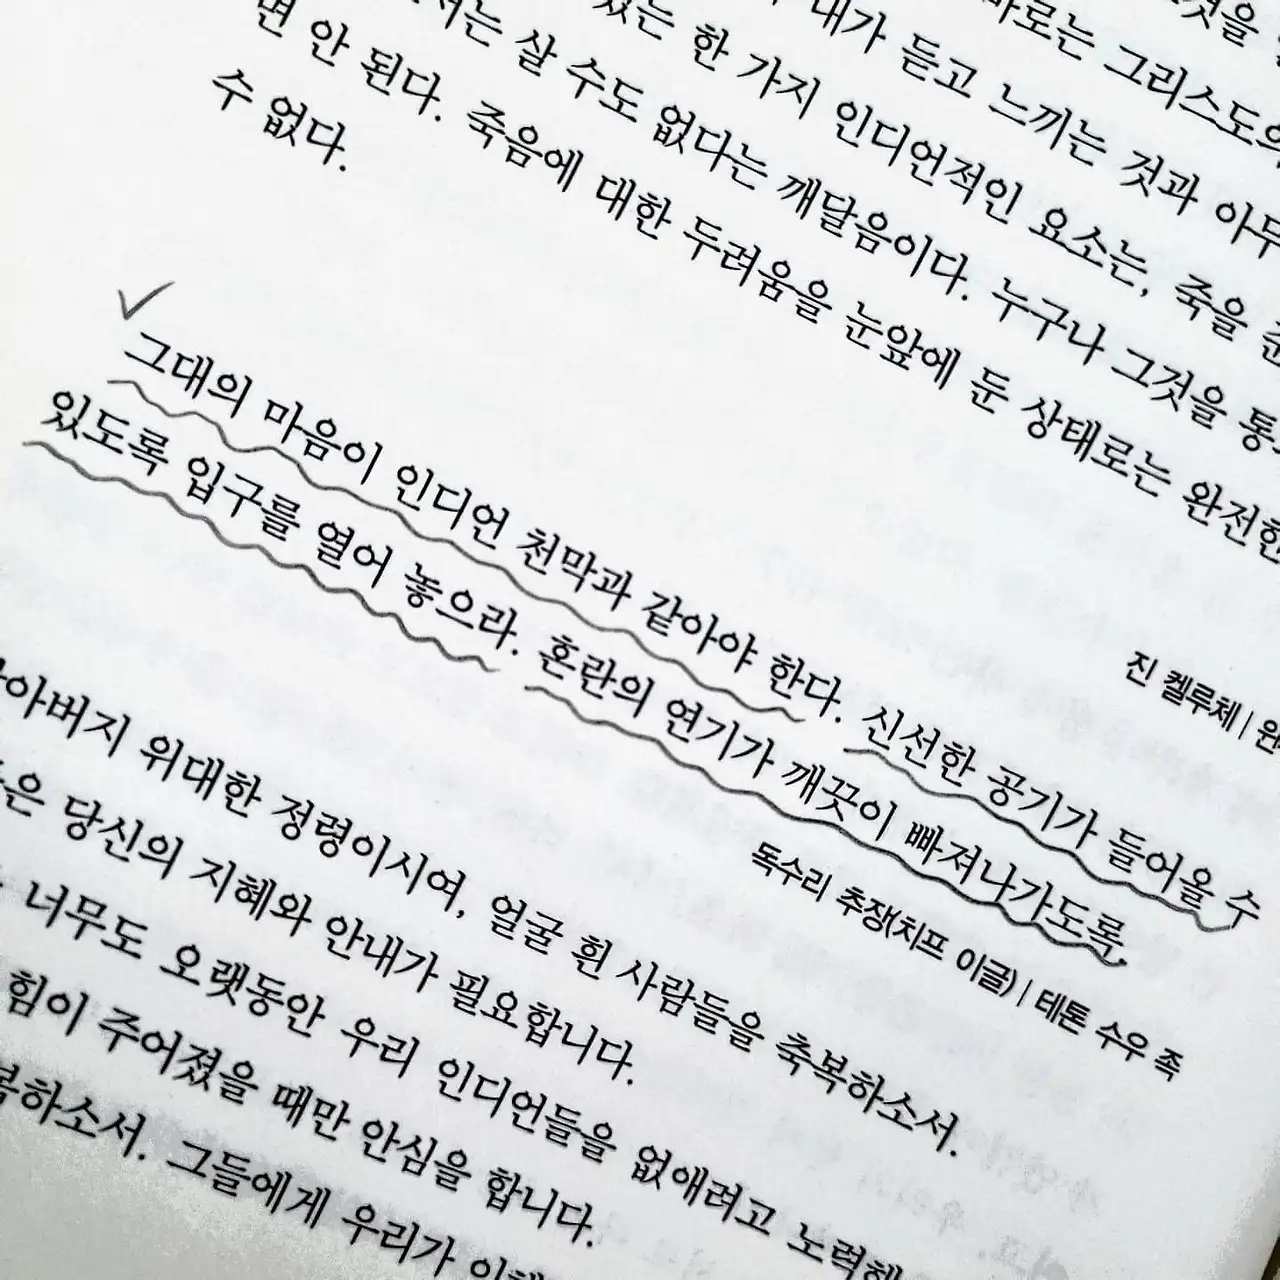 것을
바로는 그리스도의
내가 듣고 느끼는 것과 아무
있는 한 가지 인디언적인 요소는, 죽을
서는 살 수도 없다는 깨달음이다. 누구나 그것을
면 안 된다. 죽음에 대한 두려움을 눈앞에 둔 상태로는 완전한
수 없다.
진 켈루체 |
그대의 마음이 인디언 천막과 같아야 한다. 신선한 공기가 들어올 수
있도록 입구를 열어 놓으라. 혼란의 연기가 깨끗이 빠져나가도록.
독수리 추장(치프 이글) | 테톤 수우 족
아버지 위대한 정령이시여, 얼굴 흰 사람들을 축복하소서.
은 당신의 지혜와 안내가 필요합니다.
너무도 오랫동안 우리 인디언들을 없애려고
힘이 주어졌을 때만 안심을 합니다.
복하소서. 그들에게 우리가